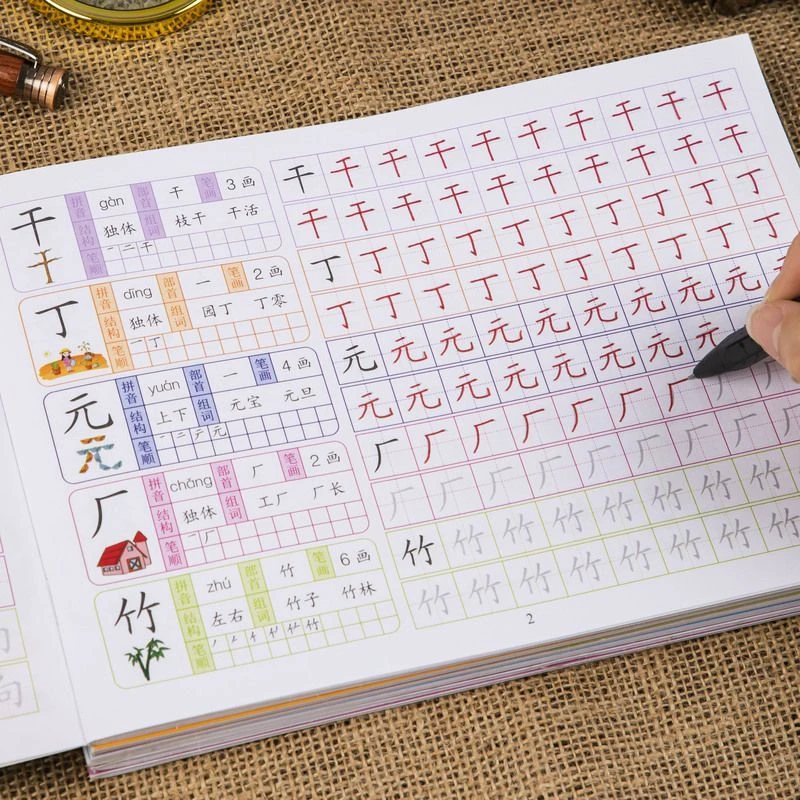 干 拼音 gàn 部首 干 笔画 3画
结构 独体 组词 枝干 干活
笔顺 一 二 干
丁 拼音 dīng 部首 一 笔画 2画
结构 独体 组词 园丁 丁零
笔顺 一 丁
元 拼音 yuán 部首 一 笔画 4画
结构 上下 组词 元宝 元旦
笔顺 一 二 テ 元
厂 拼音 chǎng 部首 厂 笔画 2画
结构 独体 组词 工厂 厂长
笔顺 一 厂
竹 拼音 zhú 部首 竹 笔画 6画
结构 左右 组词 竹子 竹林
笔顺 竹
干 干 干 干 干 干 干 干 干 干
干 干 干 干 干 干 干 干 干 干
丁 丁 丁 丁 丁 丁 丁 丁 丁 丁
丁 丁 丁 丁 丁 丁 丁 丁 丁 丁
元 元 元 元 元 元 元 元 元
元 元 元 元 元 元 元 元
厂 厂 厂 厂 厂 厂 厂 厂 厂
厂 厂 厂 厂 厂 厂 厂 厂 厂
竹 竹 竹 竹 竹 竹 竹 竹
竹 竹 竹 竹 竹 竹 竹 竹
2